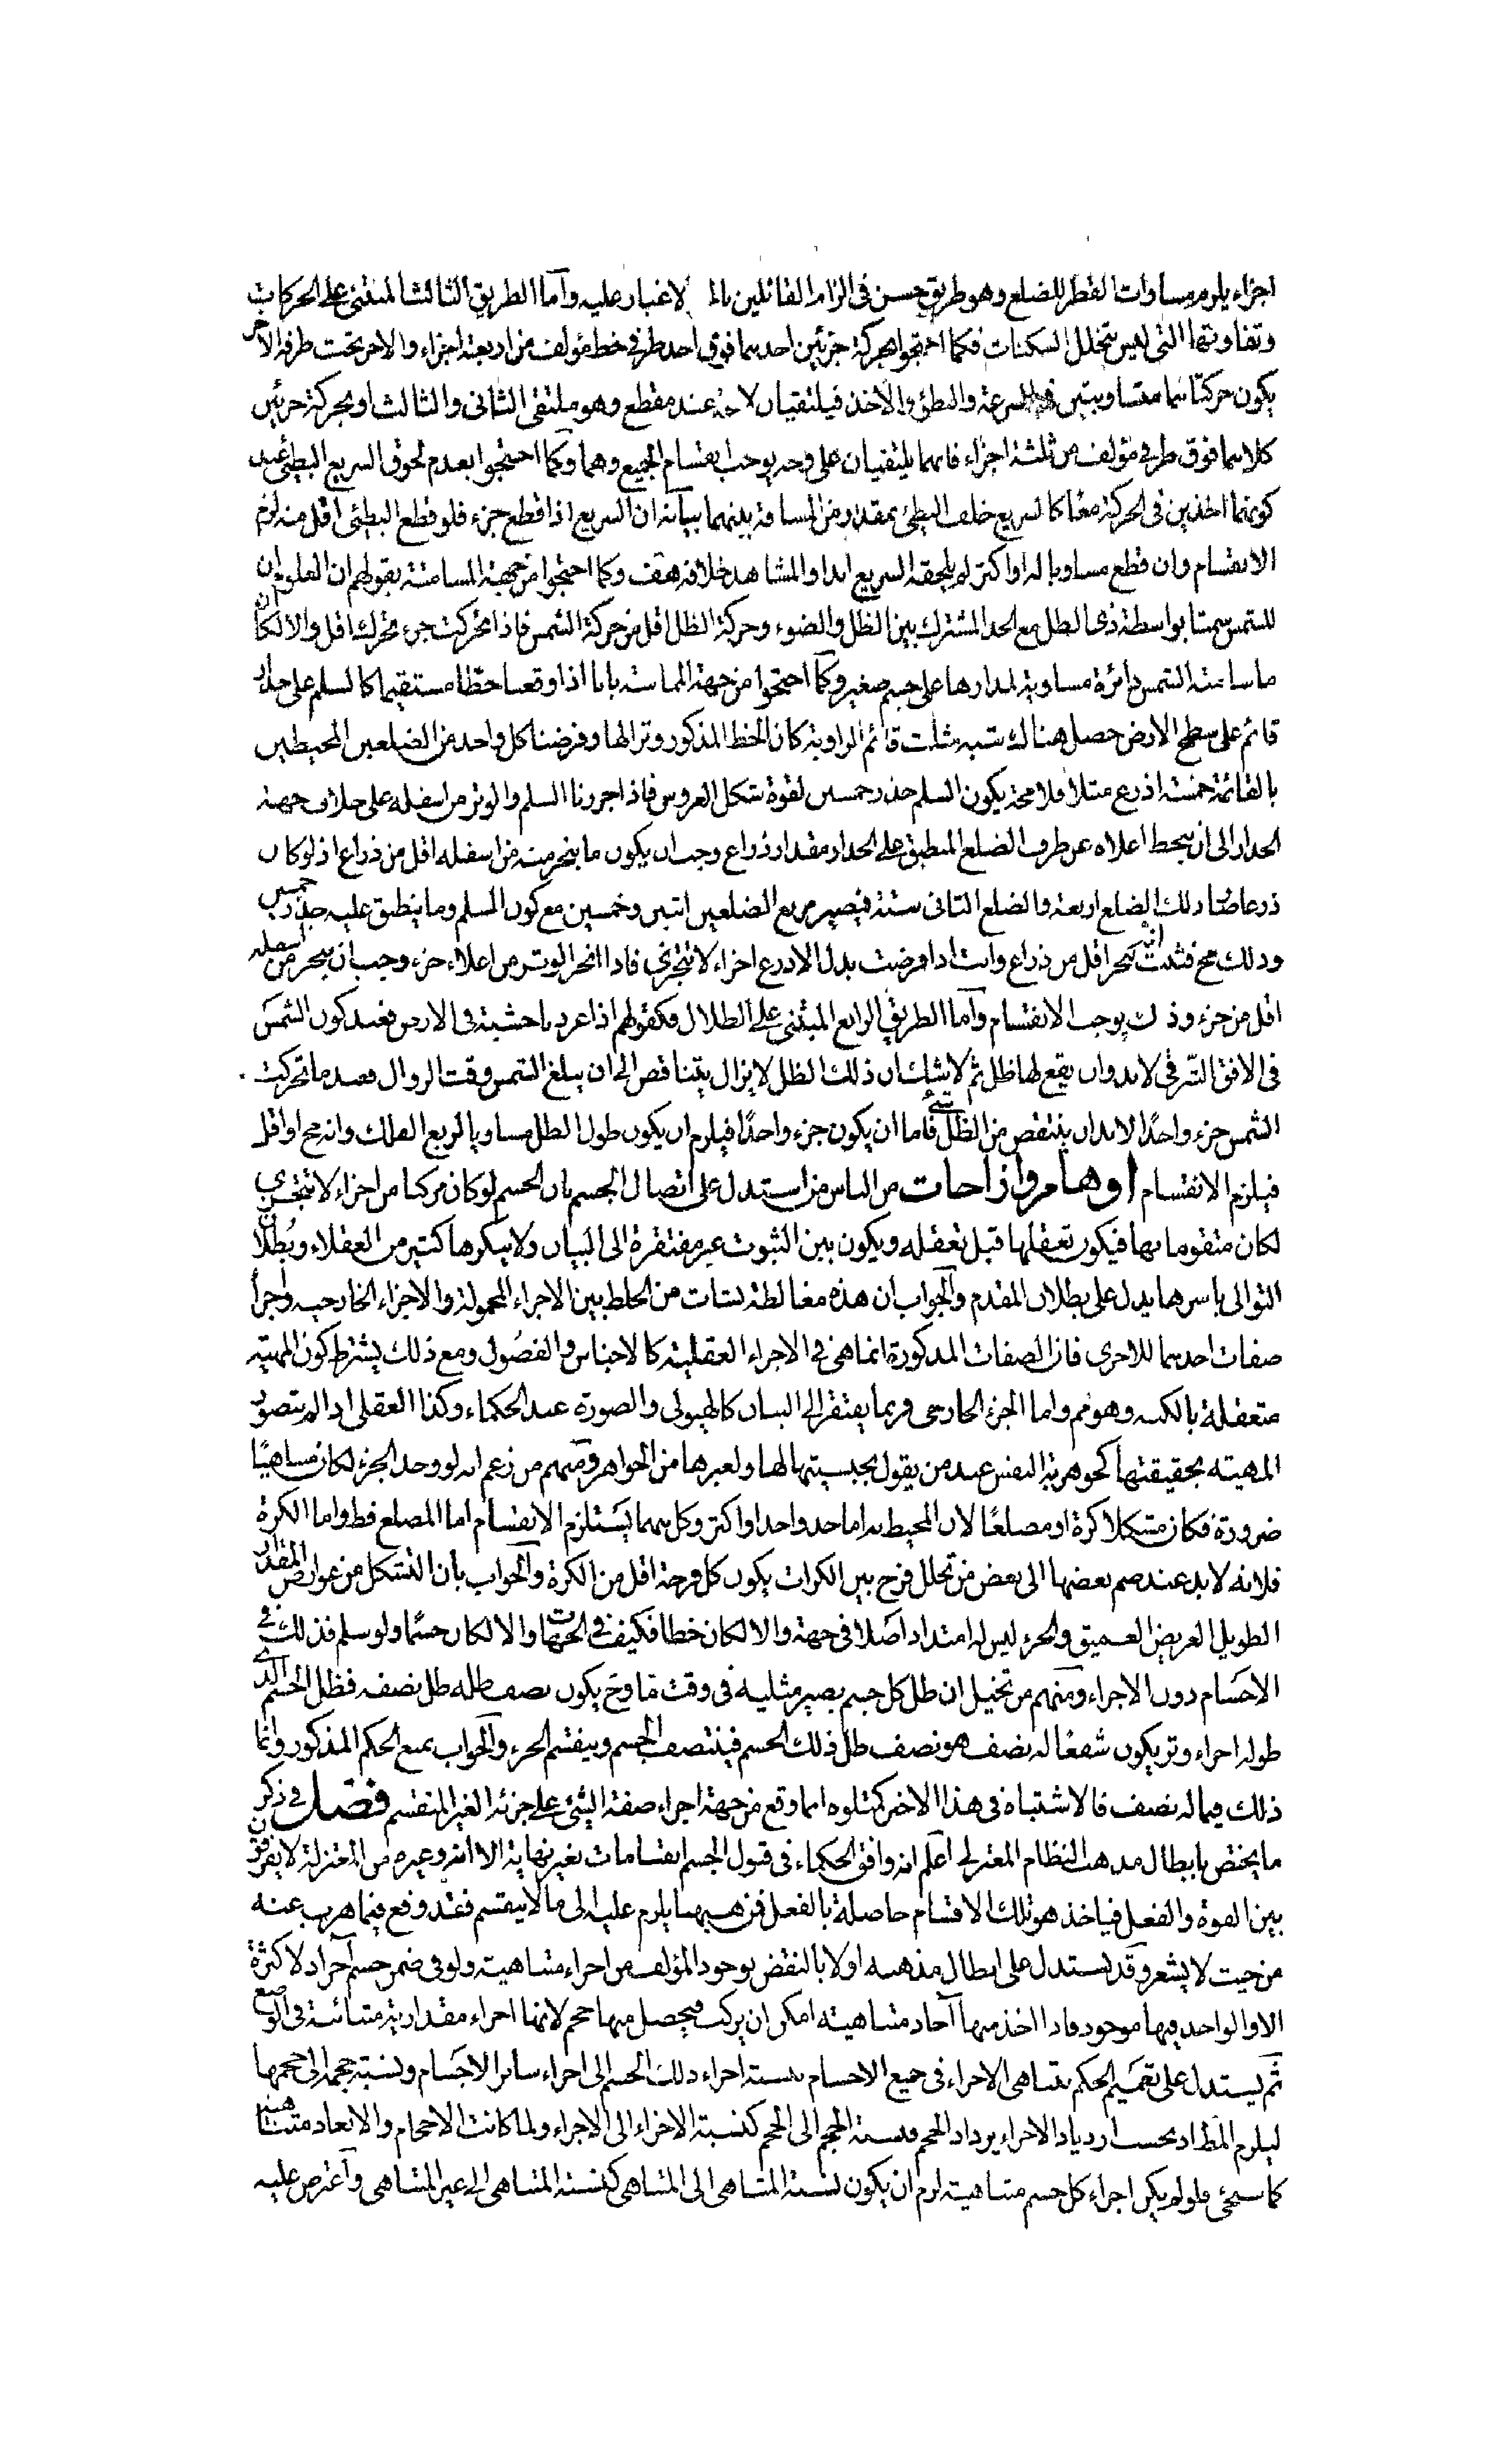 اجزاء يلزم مساوات القطر للضلع وهو طريق حسن فى الزام القائلين بالـ لا غبار عليه وأما الطريق الثالث المبتنى على الحركات
وتفاوتها التى ليس بتخلل السكنات فكما احتجوا بحركة جزئين احدهما فوق احد طرفى خط مؤلف من اربعة اجزاء والاخر تحت طرفه الاخر
يكون حركتاهما متساويتين فى السرعة والبطؤ والأخذ فيلتقيان لا محة عند مقطع وهو ملتقى الثانى والثالث او بحركة جزئين
كلاهما فوق طرفى مؤلف من ثلثة اجزاء فانهما يلتقيان على وجه يوجب انقسام الجميع وهما وكما احتجوا بعدم لحوق السريع البطئ عند
كونهما اخذين فى الحركة معًا كالسريع خلف البطئ بمقدار من المسافة بينهما بيانه ان السريع اذا قطع جزء فلو قطع البطئ اقل منه لزم
الانقسام وان قطع مساويا له او اكثر لم يلحقه السريع ابدا والمشاهد خلافه هف وكما احتجوا من جهة المسامتة بقولهم ان المعلوم ان
للشمس سمتا بواسطة ذى الظل مع الحد المشترك بين الظل والضوء وحركة الظل اقل من حركة الشمس فاذا تحركت جزء تحرك اقل والا لكان
ما سامته الشمس دائرة مساوية لمدارها على جسم صغير وكما احتجوا من جهة المماسة بانا اذا وقعنا خطّا مستقيما كالسلم على جدار
قائم على سطح الارض حصل هنالك شبه مثلث قائم الزاوية كان الخط المذكور وترا لها وفرضنا كل واحد من الضلعين المحيطين
بالقائمة خمسة اذرع مثلا فلا محة يكون السلم جذر خمسين لقوة شكل العروس فاذا جررنا السلم والوتر من اسفله على خلاف جهة
الجدار الى ان ينحط اعلاه عن طرف الضلع المنطبق على الجدار مقدار ذراع وجب ان يكون ما ينجر منه من اسفله اقل من ذراع اذ لو كان
ذرعا صار ذلك الضلع اربعة والضلع الثانى ستة فيصير مربع الضلعين اثنين وخمسين مع كون السلم وما ينطبق عليه جذر خمسين
وذلك مح فثبت انه ينجر اقل من ذراع وانت اذا فرضت بدل الاذرع اجزاء لا تتجزى فاذا انجر الوتر من اعلاه جزء وجب ان ينجر من اسفله
اقل من جزء وذلك يوجب الانقسام وأما الطريق الرابع المبتنى على الظلال فكقولهم اذا غرزنا خشبة فى الارض فعند كون الشمس
فى الافق الشرقى لابد وان يقع لها ظل ثم لا يشك ان ذلك الظل لا يزال يتناقص الى ان يبلغ الشمس وقت الزوال فعند ما تحركت
الشمس جزء واحدًا لابد ان ينتقص من الظل شئ فاما ان يكون جزء واحدًا فيلزم ان يكون طول الظل مساويا لربع الفلك وانه مح او اقل
فيلزم الانقسام اوهام وازاحات من الناس من استدل على اتصال الجسم بان الجسم لو كان مركبا من اجزاء لا تتجزى
لكان متقوما بها فيكون تعقلها قبل تعقله ويكون بين الثبوت غير مفتقرة الى البيان ولا ينكرها كثير من العقلاء وبُطلان
التوالى باسرها يدل على بطلان المقدم والجواب ان هذه مغالطة نشات من الخلط بين الاجزاء المحمولة والاجزاء الخارجية واجرأ
صفات احدهما للاخرى فان الصفات المذكورة انما هى فى الاجزاء العقلية كالاجناس والفصُول ومع ذلك يشترط كون المهية
متعقلة بالكنه وهو ثم واما الجزء الخارجى فربما يفتقر الى البيان كالهيولى والصورة عند الحكماء وكذا العقلى اذا لم يتصور
المهية بحقيقتها كجوهرية النفس عند من يقول بجنسيتها لها ولغيرها من الجواهر ومنهم من زعم انه لو وجد الجزء لكان متناهيًا
ضرورة فكان متشكلا كرة او مضلعًا لان المحيط به اما حد واحد او اكثر وكل منهما يستلزم الانقسام اما المضلع فظ واما الكرة
فلانه لابد عند ضم بعضها الى بعض من تخلل فرج بين الكرات يكون كل فرجة اقل من الكرة والجواب بأن التشكل من عوارض المقدار
الطويل العريض العميق والجزء ليس له امتداد اصلا فى جهة والا لكان خطا فكيف فى الجهات والا لكان جسمًا ولو سلم فذلك فى
الاجسام دون الاجزاء ومنهم من تخيل ان ظل كل جسم يصير مثليه فى وقت ما وح يكون نصف ظله ظل نصفه فظل الجسم الذى
طوله اجزاء وتر يكون شفعًا له نصف هو نصف ظل ذلك الجسم فينتصف الجسم وينقسم الجزء والجواب بمنع الحكم المذكور وانما
ذلك فيما له نصف فالاشتباه فى هذا الاخير كمتلوه انما وقع من جهة اجراء صفة الشئ على جزئه الغير المنقسم فصل فى ذكر
ما يختص بابطال مذهب النظام المعتزلى اعلم انه وافق الحكماء فى قبول الجسم انقسامات بغير نهاية الا انه وغيره من المعتزلة لا يفرقون
بين القوة والفعل فياخذ هو تلك الاقسام حاصلة بالفعل فمن هيهنا يلزم عليه الى ما لا ينقسم فقد وقع فيما هرب عنه
من حيث لا يشعر وقد يستدل على ابطال مذهبه اولا بالنقض بوجود المؤلف من اجزاء متناهية ولو فى ضمن جسم آخر اذ لا كثرة
الا والواحد فيها موجود فاذا اخذ منها آحاد متناهية امكن ان يركب فيحصل منها حجم لانها اجزاء مقدارية متبائنة فى الوضع
ثم يستدل على تعميم الحكم بتناهى الاجزاء فى جميع الاجسام بنسبة اجزاء ذلك الجسم الى اجزاء سائر الاجسام ونسبة حجمه الى حجمها
ليلزم المط اذ بحسب ازدياد الاجزاء يزداد الحجم فنسبة الحجم الى الحجم كنسبة الاجزاء الى الاجزاء ولما كانت الاحجام والابعاد متناهية
كما سيجئ فلو لم يكن اجزاء كل جسم متناهية لزم ان يكون نسبة المتناهى الى المتناهى كنسبة المتناهى الى غير المتناهى وأعترض عليه